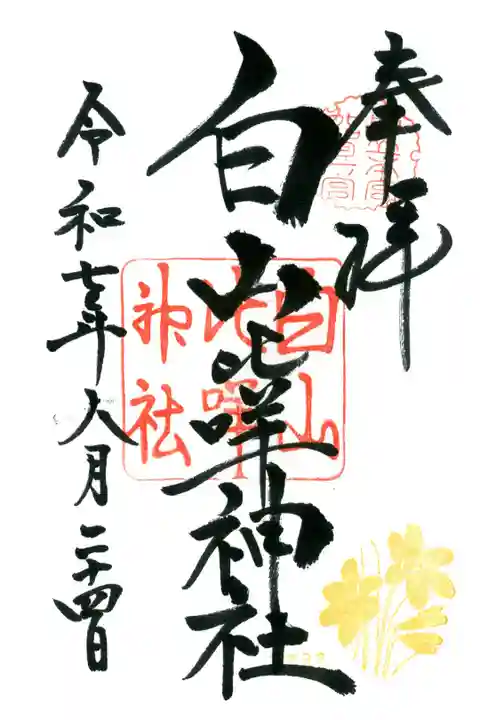 奉拝
白山比咩神社
白山
比咩
神社
令和七年六月二十四日